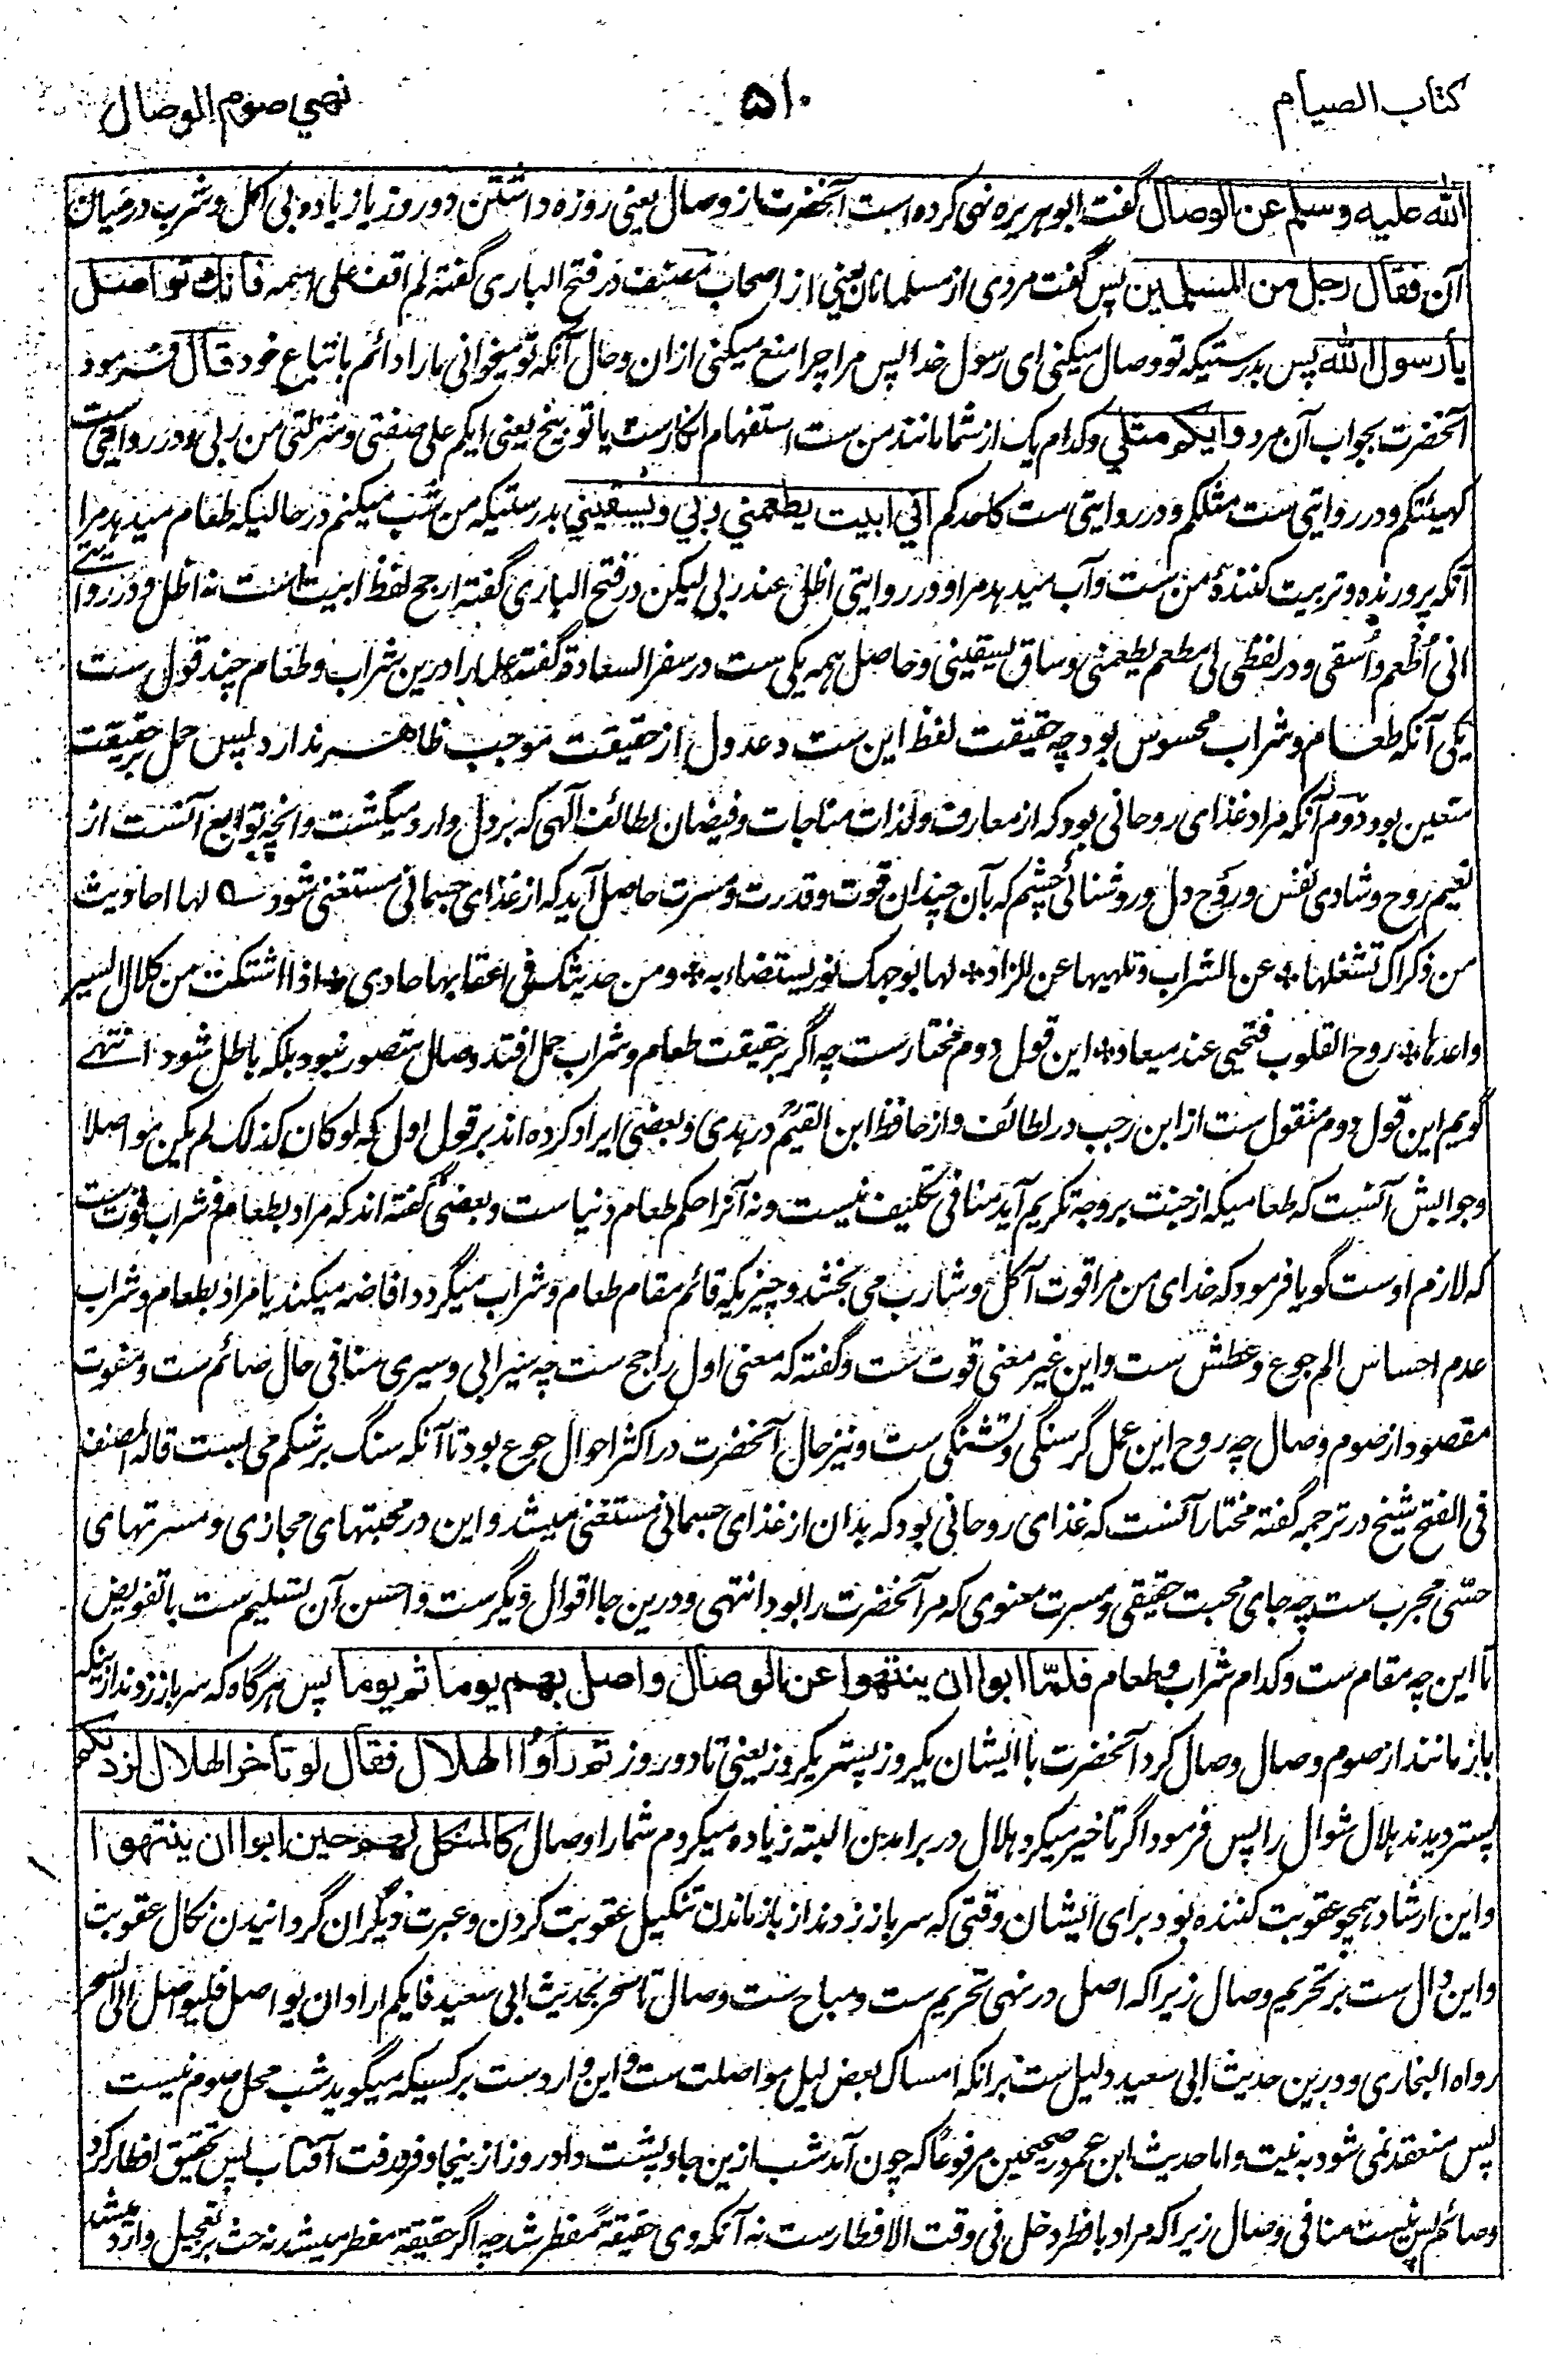 كتاب الصيام
۵۱۰
نهي صوم الوصال
الله عليه وسلم عن الوصال گفت ابوهريره نهى كرده است آنحضرت از وصال يعنى روزه داشتن دو روز يا زياده بى اكل و شرب در ميان
آن فقال رجل من المسلمين پس گفت مردى از مسلمانان يعنى از اصحاب مصنف در فتح البارى گفته لم اقف على اسمه فانك تواصل
يا رسول الله پس بدرستيكه تو وصال ميكنى اى رسول خدا پس مرا چرا منع ميكنى ازان و حال آنكه تو ميخوانى ما را دائم باتباع خود قال فرمود
آنحضرت بجواب آن مرد وايكم مثلي و كدام يك از شما مانند من ست استفهام انكارست يا توبيخ يعنى ايكم على صفتى و منزلتى من ربى و در روايتى ست
كهيئتكم و در روايتى ست مثلكم و در روايتى ست كاحدكم اني ابيت يطعمني ربي ويسقيني بدرستيكه من شب ميكنم در حاليكه طعام ميدهد مرا
آنكه پرورنده و تربيت كنندهٔ من ست و آب ميدهد مرا و در روايتى اظل عند ربى ليكن در فتح البارى گفته ارجح لفظ ابيت است نه اظل و در روايتے
انى اُطعم و اُسقى و در لفظى لى مطعم يطعمنى و ساق يسقينى و حاصل همه يكى ست در سفر السعادة گفته علما را درين شراب و طعام چند قول ست
يكى آنكه طعام و شراب محسوس بود چه حقيقت لفظ اين ست و عدول از حقيقت موجب ظاهر ندارد پس حمل بر حقيقت
متعين بود دوم آنكه مراد غذاى روحانى بود كه از معارف و لذات مناجات و فيضان لطائف الهى كه بر دل وارد ميگشت و انچه توابع آنست از
نعيم روح و شادى نفس و روح دل و روشنائى چشم كه بآن چندان قوت و قدرت و مسرت حاصل آيد كه از غذاى جسمانى مستغنى شود ے لها احاديث
من ذكراك تشغلها * عن الشراب و تلهيها عن الزاد * لها بوجهك نور يستضاء به * و من حديثك فى اعقابها حادى * اذا اشتكت من كلال السير
واعدها * روح القلوب فتحيى عند ميعاد * اين قول دوم مختارست چه اگر بر حقيقت طعام و شراب حمل افتد وصال متصور نبود بلكه باطل شود انتهے
گويم اين قول دوم منقول ست از ابن رجب در لطائف و از حافظ ابن القيم در هدى و بعضى ايراد كرده اند بر قول اول كه لو كان كذلك لم يكن مواصلا
و جوابش آنست كه طعاميكه از جنت بر وجه تكريم آيد منافى تكليف نيست و نه آنرا حكم طعام دنياست و بعضى گفته اند كه مراد بطعام و شراب قوت ست
كه لازم اوست گويا فرمود كه خداى من مرا قوت آكل و شارب مى بخشد و چيزيكه قائم مقام طعام و شراب ميگردد افاضه ميكند يا مراد بطعام و شراب
عدم احساس الم جوع و عطش ست و اين غير معنى قوت ست و گفته كه معنى اول راجح ست چه سيرابى و سيرى منافى حال صائم ست و مفوت
مقصود از صوم وصال چه روح اين عمل گرسنگى و تشنگى ست و نيز حال آنحضرت در اكثر احوال جوع بود تا آنكه سنگ بر شكم مى بست قاله المصنف
فى الفتح شيخ در ترجمه گفته مختار آنست كه غذاى روحانى بود كه بدان از غذاى جسمانى مستغنى ميشد و اين در محبتهاى مجازى و مسرتهاى
حسى مجرب ست چه جاى محبت حقيقى و مسرت معنوى كه مر آنحضرت را بود انتهى و درين جا اقوال ديگرست و احسن آن تسليم ست با تفويض
تا اين چه مقام ست و كدام شراب و طعام فلمّا ابوا ان ينتهوا عن الوصال واصل بهم يوما ثم يوما پس هرگاه كه سر باز زدند ازينكه
باز مانند از صوم وصال وصال كرد آنحضرت با ايشان يكروز پستر يكروز يعنى تا دو روز ثم رأوُا الهلال فقال لو تأخر الهلال لزدتكم
پستر ديدند هلال شوال را پس فرمود اگر تاخير ميكرد هلال در برامدن البته زياده ميكردم شما را وصال كالمنكل لهم حين ابوا ان ينتهوا
و اين ارشاد همچو عقوبت كننده بود براى ايشان وقتى كه سر باز زدند از باز ماندن تنكيل عقوبت كردن و عبرت ديگران گردانيدن نكال عقوبت
و اين دال ست بر تحريم وصال زيرا كه اصل در نهى تحريم ست و مباح ست وصال تا سحر بحديث ابى سعيد فايكم اراد ان يواصل فليواصل الى السحر
رواه البخارى و درين حديث ابى سعيد دليل ست برانكه امساك بعض ليل مواصلت ست و اين وارد ست بر كسيكه ميگويد شب محل صوم نيست
پس منعقد نمى شود به نيت و اما حديث ابن عمر در صحيحين مرفوعًا كه چون آمد شب ازين جا و پشت داد روز از ينجا و فرو رفت آفتاب پس تحقيق افطار كرد
صائم پس نيست منافى وصال زيرا كه مراد بافطر دخل فى وقت الافطارست نه آنكه وى حقيقةً مفطر شد چه اگر حقيقة مفطر ميشد نه حث بر تعجيل وارد ميشد